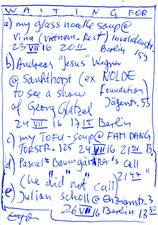 WAITING FOR
a) my glass noodle soup @
Vina (Vietnam. Rest) Invalidenstr.
23 VII 16 20 Berlin 153
b) Andreas "Jesus" Wegner
@ Sankthopt (ex NOLDE
to see a show Foundation
of Georg Glatzel Jägerstr. 55
24 VII 16 17 15 Berlin
c) my TOFU-soup @ PHAM DANG
TORSTR. 125 24 VII 16 21 21 B.
d) Pascal Baumgärtner's call
(he "did" not call) 21 47
e) Julian Scholl @ Ehmanstr. 3
26 VII 16 Berlin 13